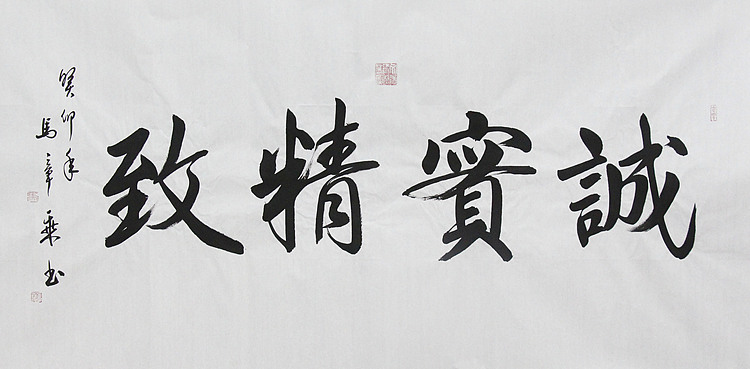 誠實精致
癸卯年
馬章乘书